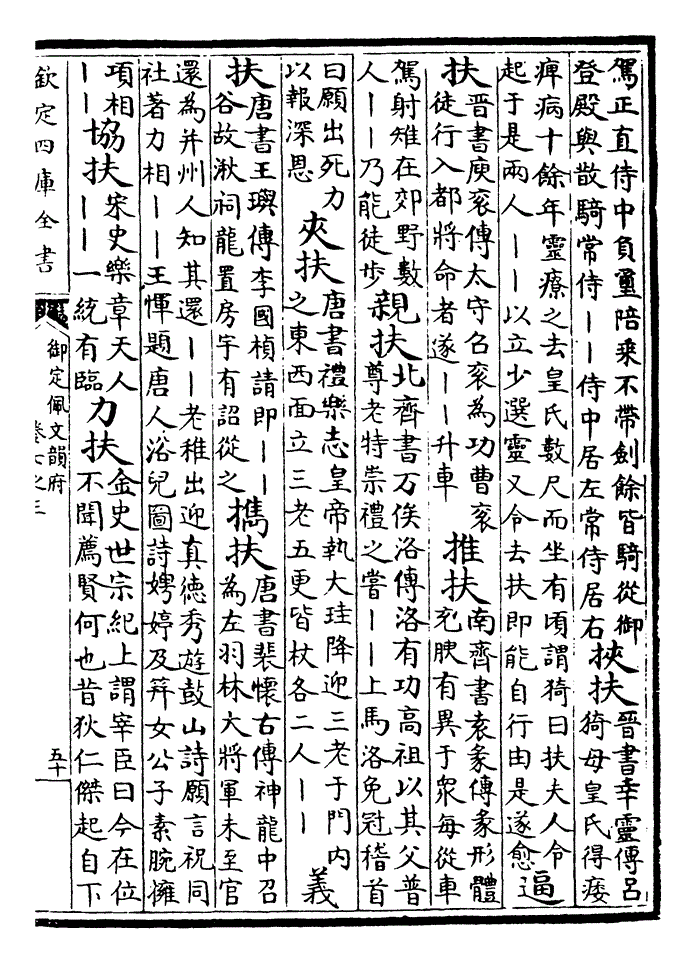 駕正直侍中負璽陪乗不帶劍餘皆騎從御
登殿與散騎常侍丨丨侍中居左常侍居右
挾扶
晉書幸靈傳呂
猗母皇氏得痿
痺病十餘年靈療之去皇氏數尺而坐有頃謂猗曰扶夫人令
起于是兩人丨丨以立少選靈又令去扶即能自行由是遂愈
逼
扶
晉書庾衮傳太守召衮為功曹衮
徒行入都將命者遂丨丨升車
推扶
南齊書袁彖傳彖形體
充腴有異于衆每從車
駕射雉在郊野數
人丨丨乃能徒步
親扶
北齊書万俟洛傳洛有功高祖以其父普
尊老特崇禮之嘗丨丨上馬洛免冠稽首
曰願出死力
以報深恩
夾扶
唐書禮樂志皇帝執大珪降迎三老于門内
之東西面立三老五更皆杖各二人丨丨
義
扶
唐書王璵傳李國楨請即丨丨
谷故湫祠龍置房宇有詔從之
攜扶
唐書裴懷古傳神龍中召
為左羽林大將軍未至官
還為并州人知其還丨丨老稚出迎真德秀遊鼓山詩願言祝同
社著力相丨丨王惲題唐人浴兒圖詩娉婷及笄女公子素腕擁
項相
丨丨
協扶
宋史樂章天人
丨丨一統有臨
力扶
金史世宗紀上謂宰臣曰今在位
不聞薦賢何也昔狄仁傑起自下
欽定四庫全書
御定佩文韻府
卷七之三
五十